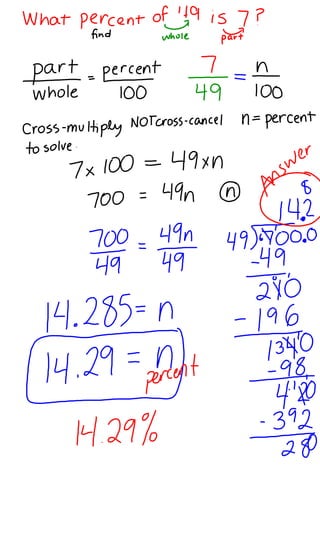 What percent of 49 is 7?
find whole part
part/whole = percent/100 7/49 = n/100
Cross-multiply NOT cross-cancel n = percent
to solve.
7 x 100 = 49 x n
700 = 49n n
700/49 = 49n/49
14.285 = n
14.29 = n percent
14.29%
Answer
8
14.2
49)700.0
-49
210
-196
140
-98
420
-392
280